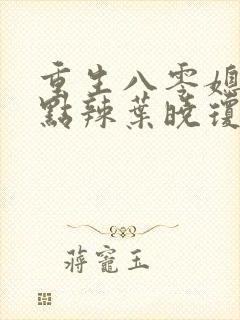 重生八零媳
點辣葉曉瓊
蔣寵玉